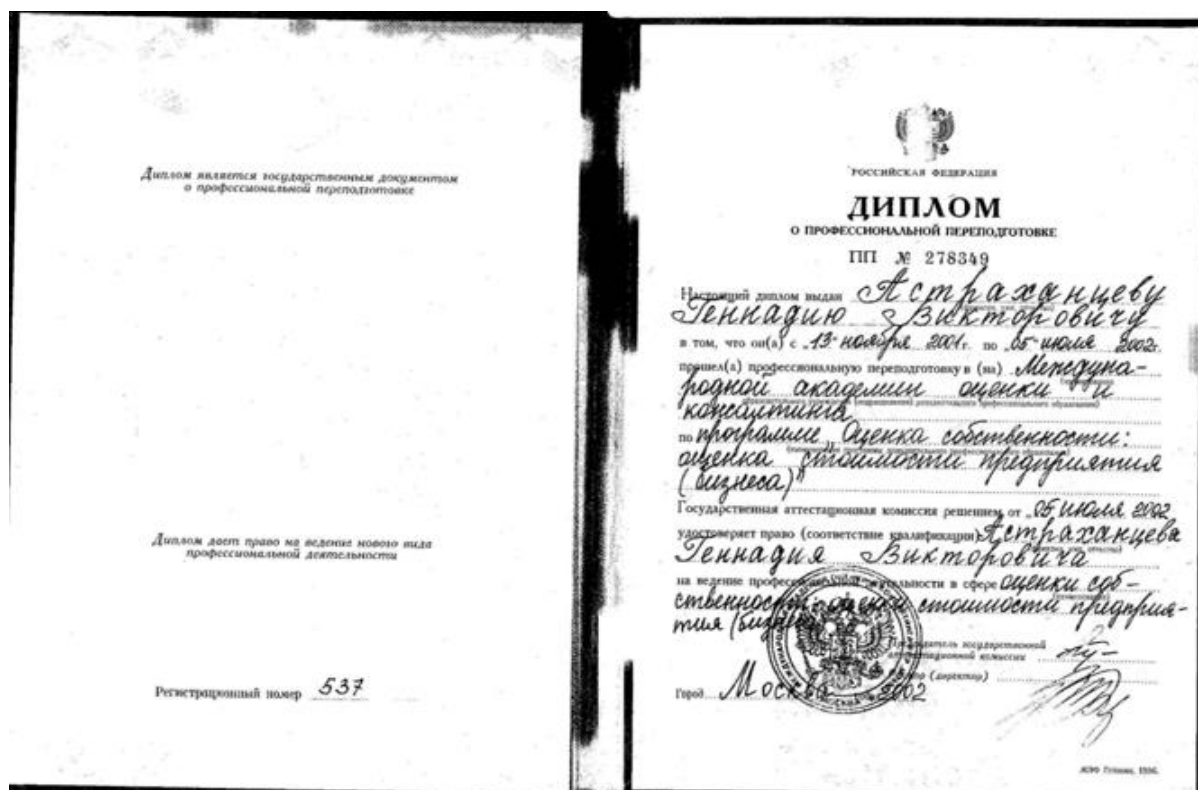 Диплом является государственным документом
о профессиональной переподготовке
Диплом дает право на ведение нового вида
профессиональной деятельности
Регистрационный номер 537
РОССИЙСКАЯ ФЕДЕРАЦИЯ
ДИПЛОМ
О ПРОФЕССИОНАЛЬНОЙ ПЕРЕПОДГОТОВКЕ
ПП № 278349
Настоящий диплом выдан Астраханцеву
Геннадию Викторовичу
в том, что он(а) с „13" ноября 2001г. по „05" июля 2002г.
прошел(а) профессиональную переподготовку в (на) Междуна-
родной академии оценки и
консалтинга
по программе „Оценка собственности:
оценка стоимости предприятия
(бизнеса)"
Государственная аттестационная комиссия решением от „05 июля 2002
удостоверяет право (соответствие квалификации) Астраханцева
Геннадия Викторовича
на ведение профессиональной деятельности в сфере оценки соб-
ственности: оценки стоимости предприя-
тия (бизнеса)
Председатель государственной
аттестационной комиссии
Ректор (директор)
Город Москва 2002